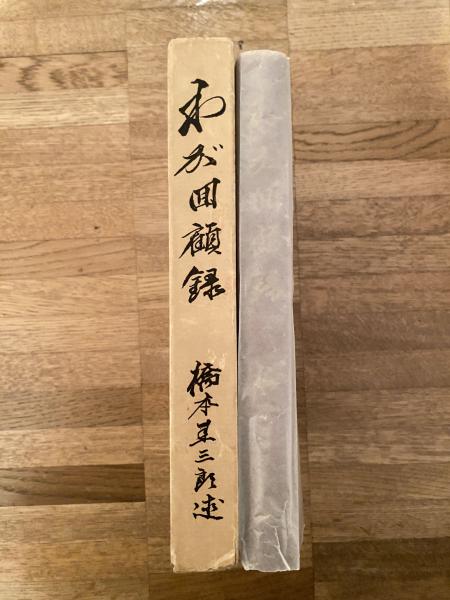 わが回顧録
橋本圭三郎述